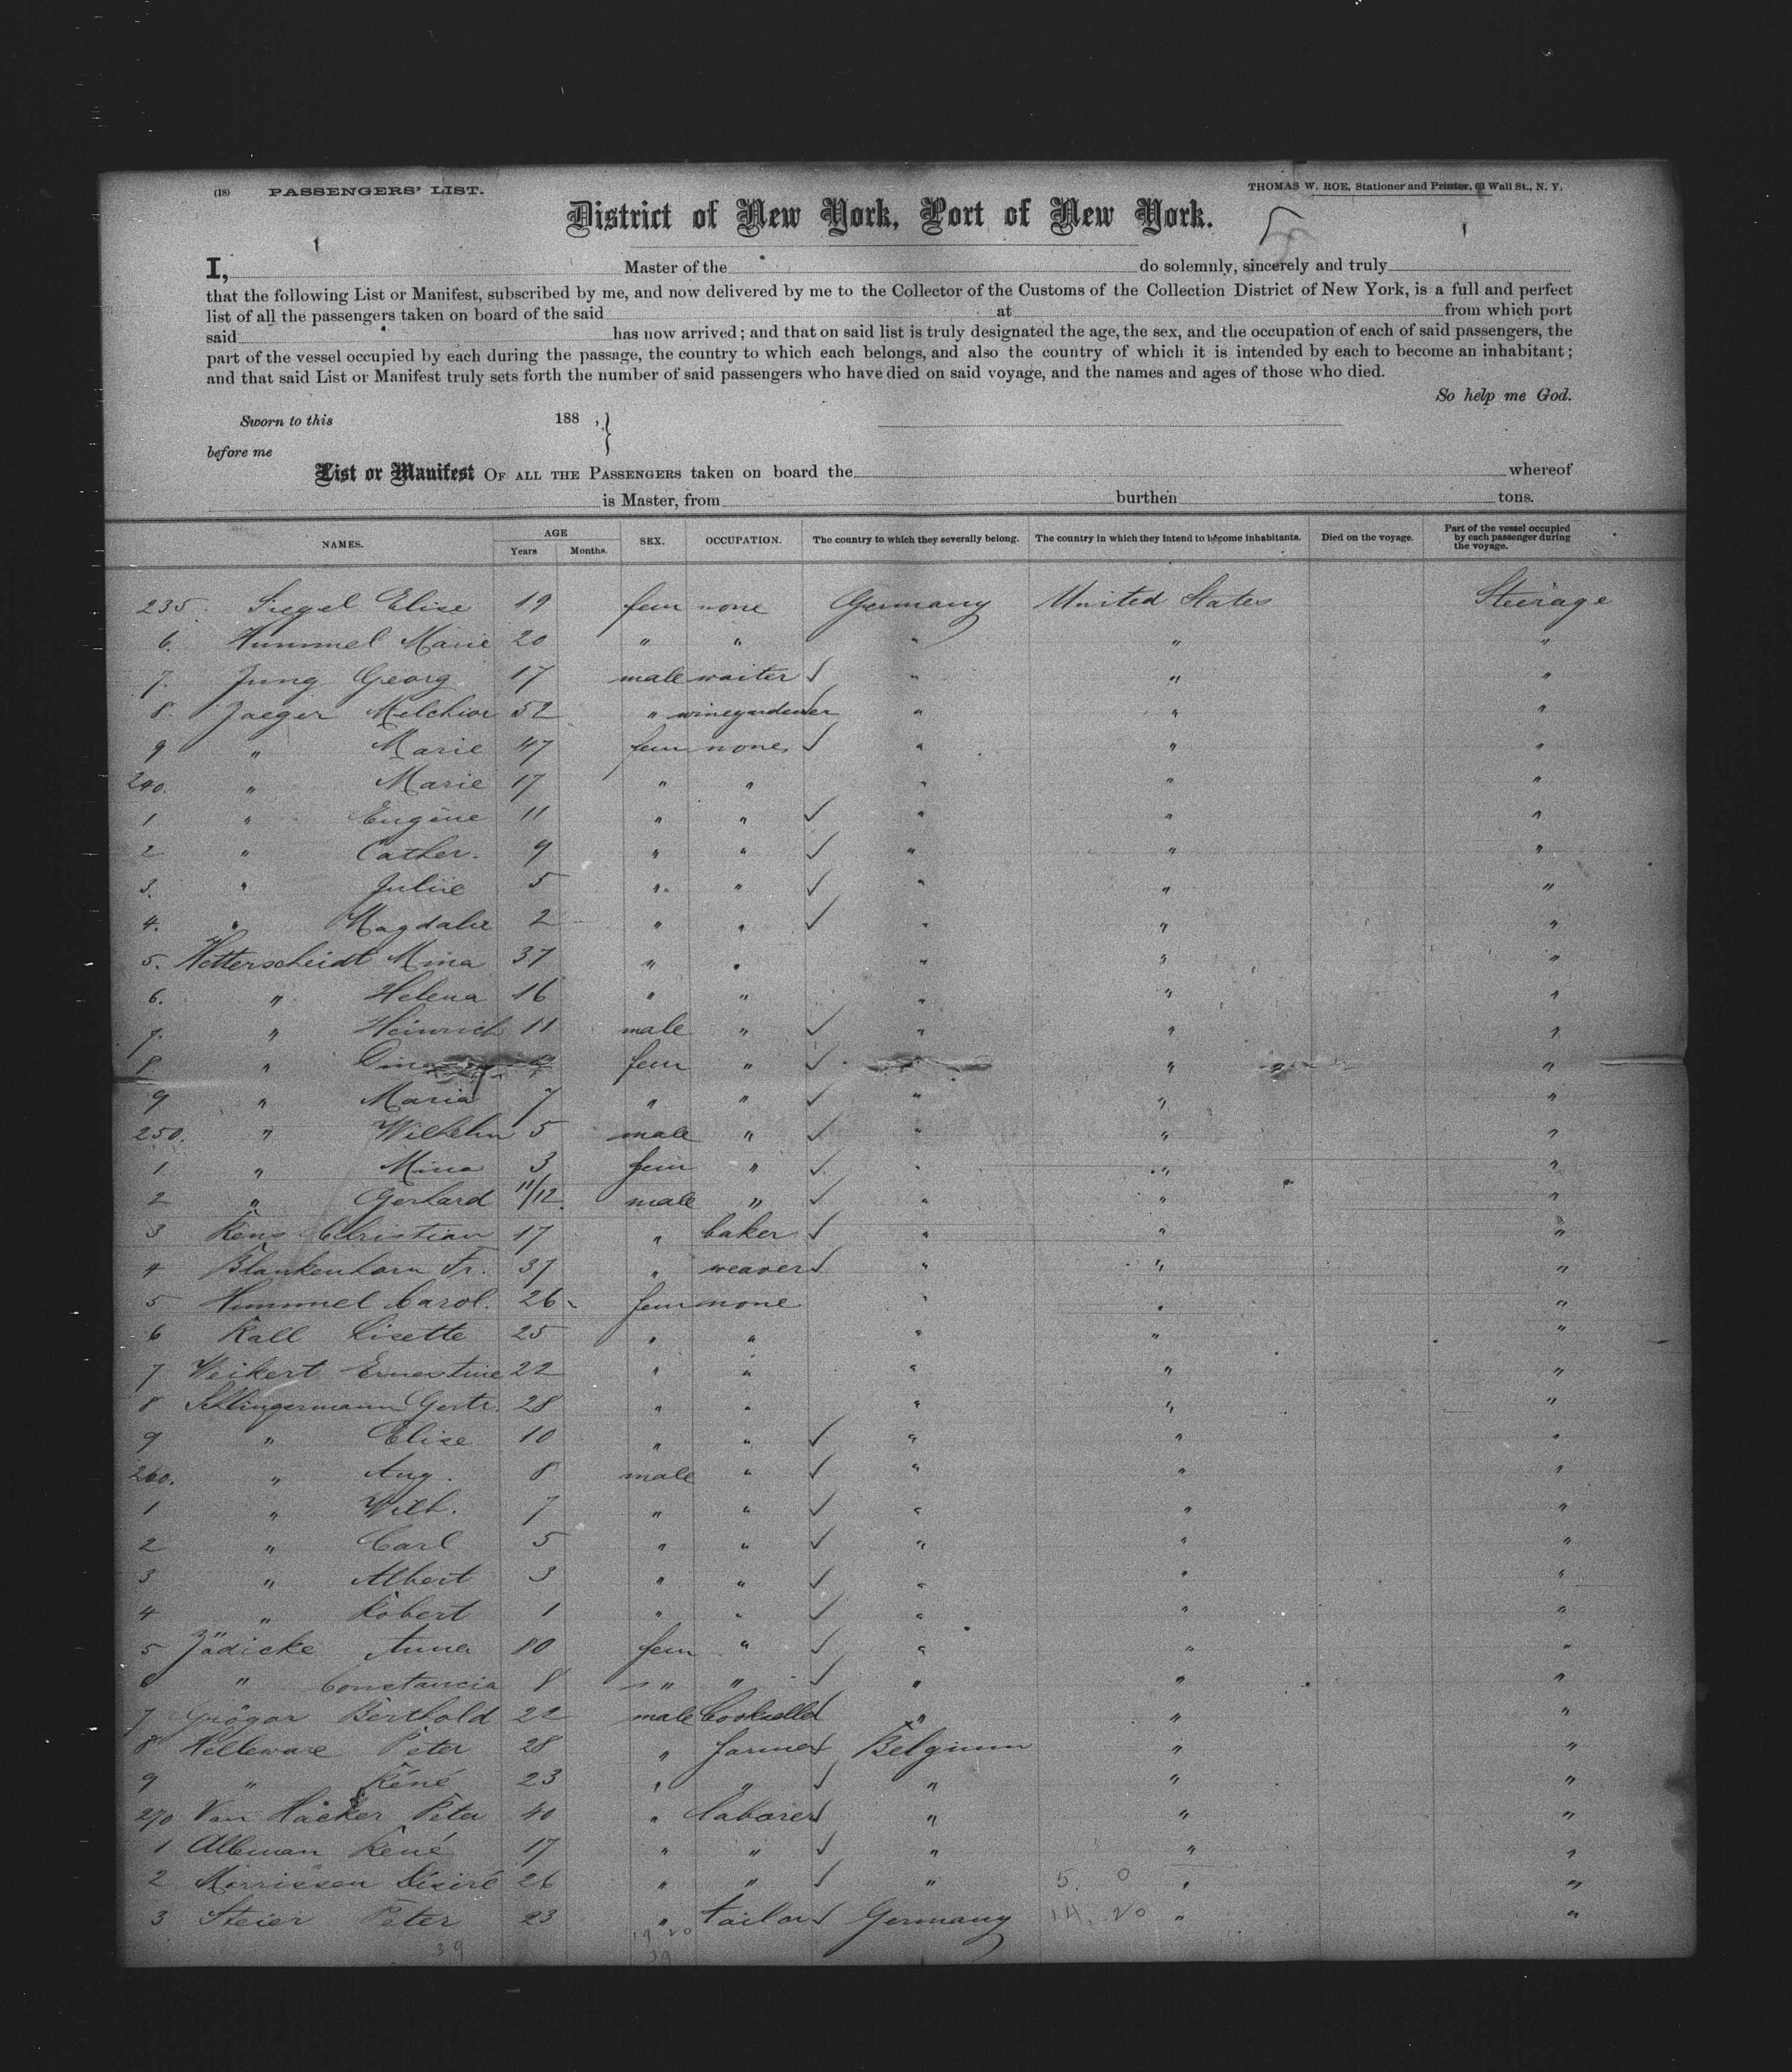 (18) PASSENGERS' LIST. THOMAS W. ROE, Stationer and Printer, 63 Wall St., N. Y.
District of New York, Port of New York.
5
I, Master of the do solemnly, sincerely and truly
that the following List or Manifest, subscribed by me, and now delivered by me to the Collector of the Customs of the Collection District of New York, is a full and perfect
list of all the passengers taken on board of the said at from which port
said has now arrived; and that on said list is truly designated the age, the sex, and the occupation of each of said passengers, the
part of the vessel occupied by each during the passage, the country to which each belongs, and also the country of which it is intended by each to become an inhabitant;
and that said List or Manifest truly sets forth the number of said passengers who have died on said voyage, and the names and ages of those who died.
So help me God.
Sworn to this 188 , }
before me
List or Manifest OF ALL THE PASSENGERS taken on board the whereof
is Master, from burthen tons.
NAMES. AGE Years Months. SEX. OCCUPATION. The country to which they severally belong. The country in which they intend to become inhabitants. Died on the voyage. Part of the vessel occupied by each passenger during the voyage.
235. Siegel Elise 19 fem none Germany United States Steerage
6. Hummel Marie 20 " " " " "
7. Jung Georg 17 male waiter ✓ " " "
8. Jaeger Melchior 52 " winegardener " " "
9 " Marie 47 fem none ✓ " " "
240. " Marie 17 " " " " "
1 " Eugène 11 " " ✓ " " "
2 " Cather. 9 " " ✓ " " "
3. " Julie 5 " " ✓ " " "
4. " Magdale 2 " " ✓ " " "
5. Hetterscheidt Mina 37 " " " " "
6. " Helena 16 " " " " "
7. " Heinrich 11 male " ✓ " " "
8 " 9 fem " ✓ " "
9 " Maria 7 " " ✓ " " "
250. " Wilhelm 5 male " ✓ " " "
1 " Mina 3 fem " ✓ " " "
2 " Gerhard 11/12 male " ✓ " " "
3 Rens Christian 17 " baker ✓ " " "
4 Blankenhorn Fr. 37 " weaver ✓ " " "
5 Hummel Carol. 26 fem none " " "
6 Kall Lisette 25 " " " " "
7 Weikert Ernestine 22 " " " " "
8 Schlingermann Gertr. 28 " " " " "
9 " Elise 10 " " ✓ " " "
260. " Aug. 8 male " ✓ " " "
1 " Wilh. 7 " " ✓ " " "
2 " Carl 5 " " ✓ " " "
3 " Albert 3 " " ✓ " " "
4 " Robert 1 " " ✓ " " "
5 Jädicke Anna 10 fem " ✓ " " "
6 " Constancia 8 " " ✓ " " "
7 Grögor Berthold 22 male bookseller " " "
8 Helleware Peter 28 " farmer Belgium " "
9 " Réné 23 " " ✓ " " "
270 Van Häcker Peter 40 " laborer " " "
1 Alleman René 17 " " ✓ " " "
2 Morrissen Désiré 26 " " ✓ " 5. 0 " "
3 Steier Peter 23 " tailor ✓ Germany 14. 20 " "
19. 20
39 39